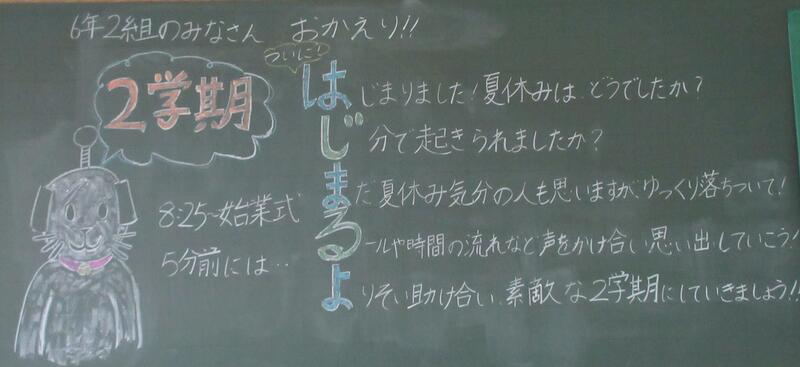 6年2組のみなさん おかえり!!
ついに!
2学期
はじまりました!夏休みは、どうでしたか?
じ分で起きられましたか?
まだ夏休み気分の人も思いますが、ゆっくり落ちついて!
るールや時間の流れなど声をかけ合い思い出していこう!
よりそい助け合い、素敵な2学期にしていきましょう!!
8:25~始業式
5分前には‥